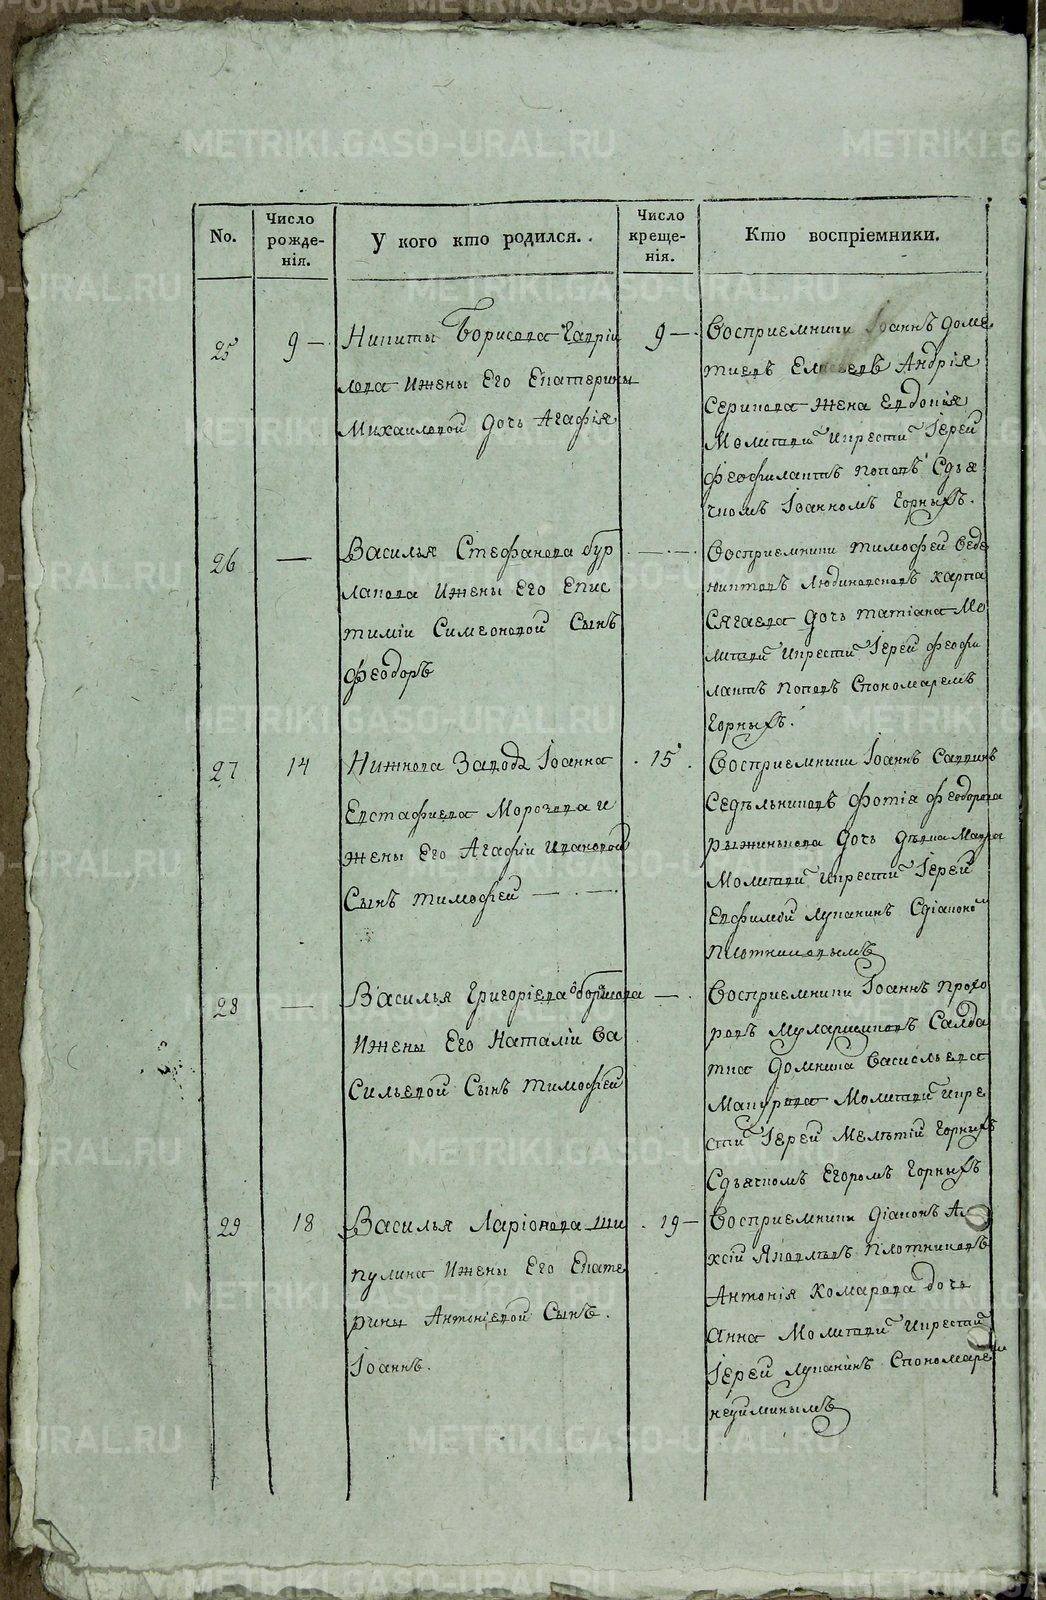 No.
Число рожде-нія.
У кого кто родился.
Число креще-нія.
Кто воспріемники.
25
9 —
Никиты Борисова Гаврі
лова Ижены Его Екатерины
Михаиловой дочь Агафія
9 —
Восприемники Іоаннъ Доме
тиевъ Елисеевъ Андрія
Серикова жена Евдокія
Молитвй Икрестй Іерей
Феофилактъ Поповъ Сдья
чкомъ Іоанномъ Горныхъ.
26
—
Василья Стефанова бур
лакова Ижены Его Епис
тиміи Симеоновой Сынъ
Феодоръ
—
Восприемники тимофей
Сягаева дочь татіана Мо
литвй Икрестй Іерей феофи
лактъ Поповъ Спономаремъ
Горныхъ.
27
14
Нижнова Завода Іоанна
Евстафиева Морозова и
жены Его Агафіи Ивановой
Сынъ тимофей —
15
Восприемники Іоаннъ Саввинъ
Седельниковъ Фотіа Феодорова
рыжинькова дочь девка Мавра
Молитвй Икрестй Іерей
Евфимей Лупанинъ Сдіаконо
Плотниковымъ
28
—
Василья Григоріева
Ижены Его Наталіи Ва
сильевой Сынъ тимофей
—
Восприемники Іоаннъ Прохо
ровъ Муларщиковъ Салда
тка Домника Васисльева
Мокрова Молитвй Икре
стй Іерей Мелетій Горныхъ
Сдьячкомъ Егоромъ Горныхъ
29
18
Василья Ларіонова Ши
пулина Ижены Его Екате
рины Антоніевой Сынъ.
Іоаннъ.
19 —
Восприемники діаконъ Але
ксій Яковлевъ Плотниковъ
Антонія Комарова дочь
Анна Молитвй Икрестй
Іерей Лупанинъ Спономаре
неуйминымъ
METRIKI.GASO-URAL.RU